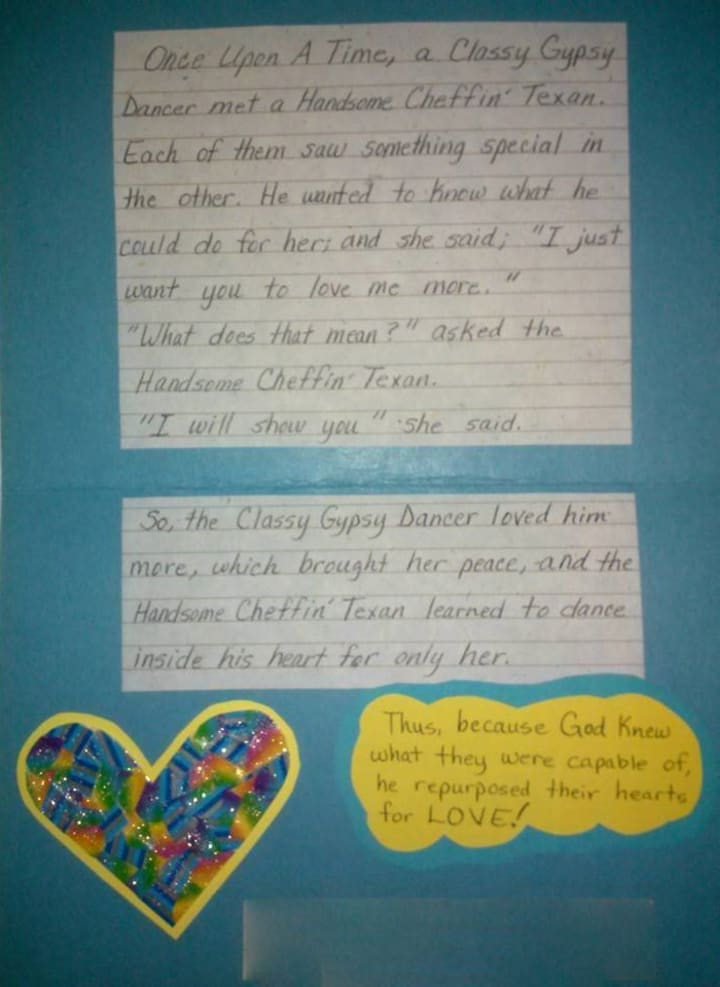 Once Upon A Time, a Classy Gypsy
Dancer met a Handsome Cheffin' Texan.
Each of them saw something special in
the other. He wanted to know what he
could do for her; and she said; "I just
want you to love me more."
"What does that mean?" asked the
Handsome Cheffin' Texan.
"I will show you" she said.
So, the Classy Gypsy Dancer loved him
more, which brought her peace, and the
Handsome Cheffin' Texan learned to dance
inside his heart for only her.
Thus, because God Knew
what they were capable of,
he repurposed their hearts
for LOVE!